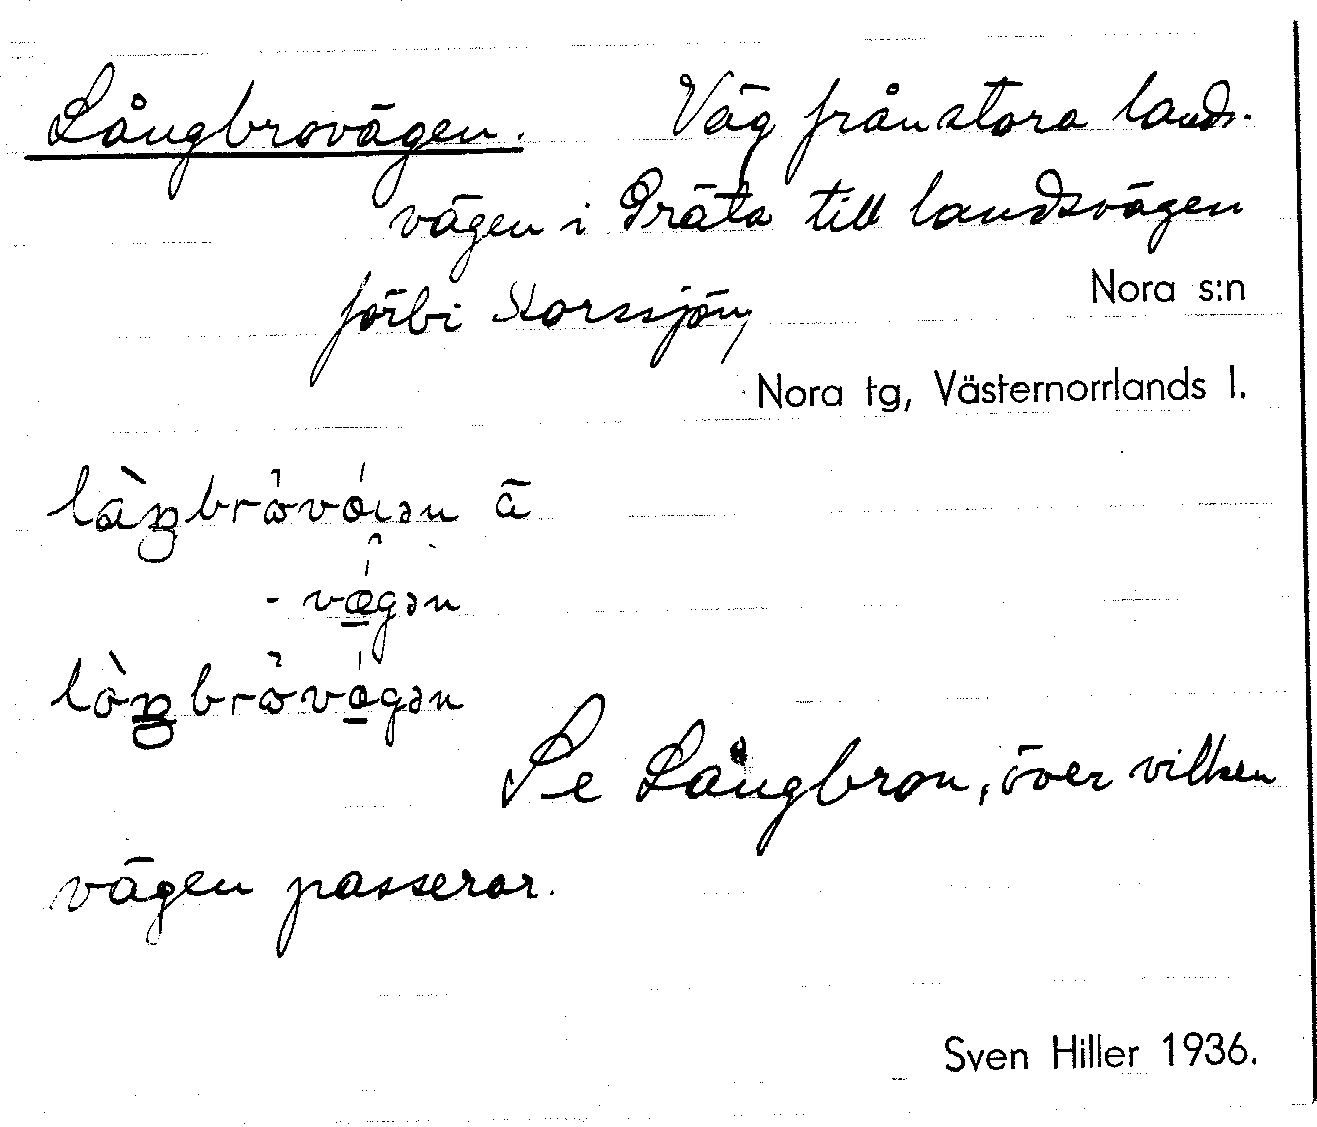 Långbrovägen. Väg från stora lands-
vägen i Präta till landsvägen
förbi Korssjön,
Nora s:n
Nora tg, Västernorrlands l.
-vǽgən
Se Långbron, över vilken
vägen passerar.
Sven Hiller 1936.